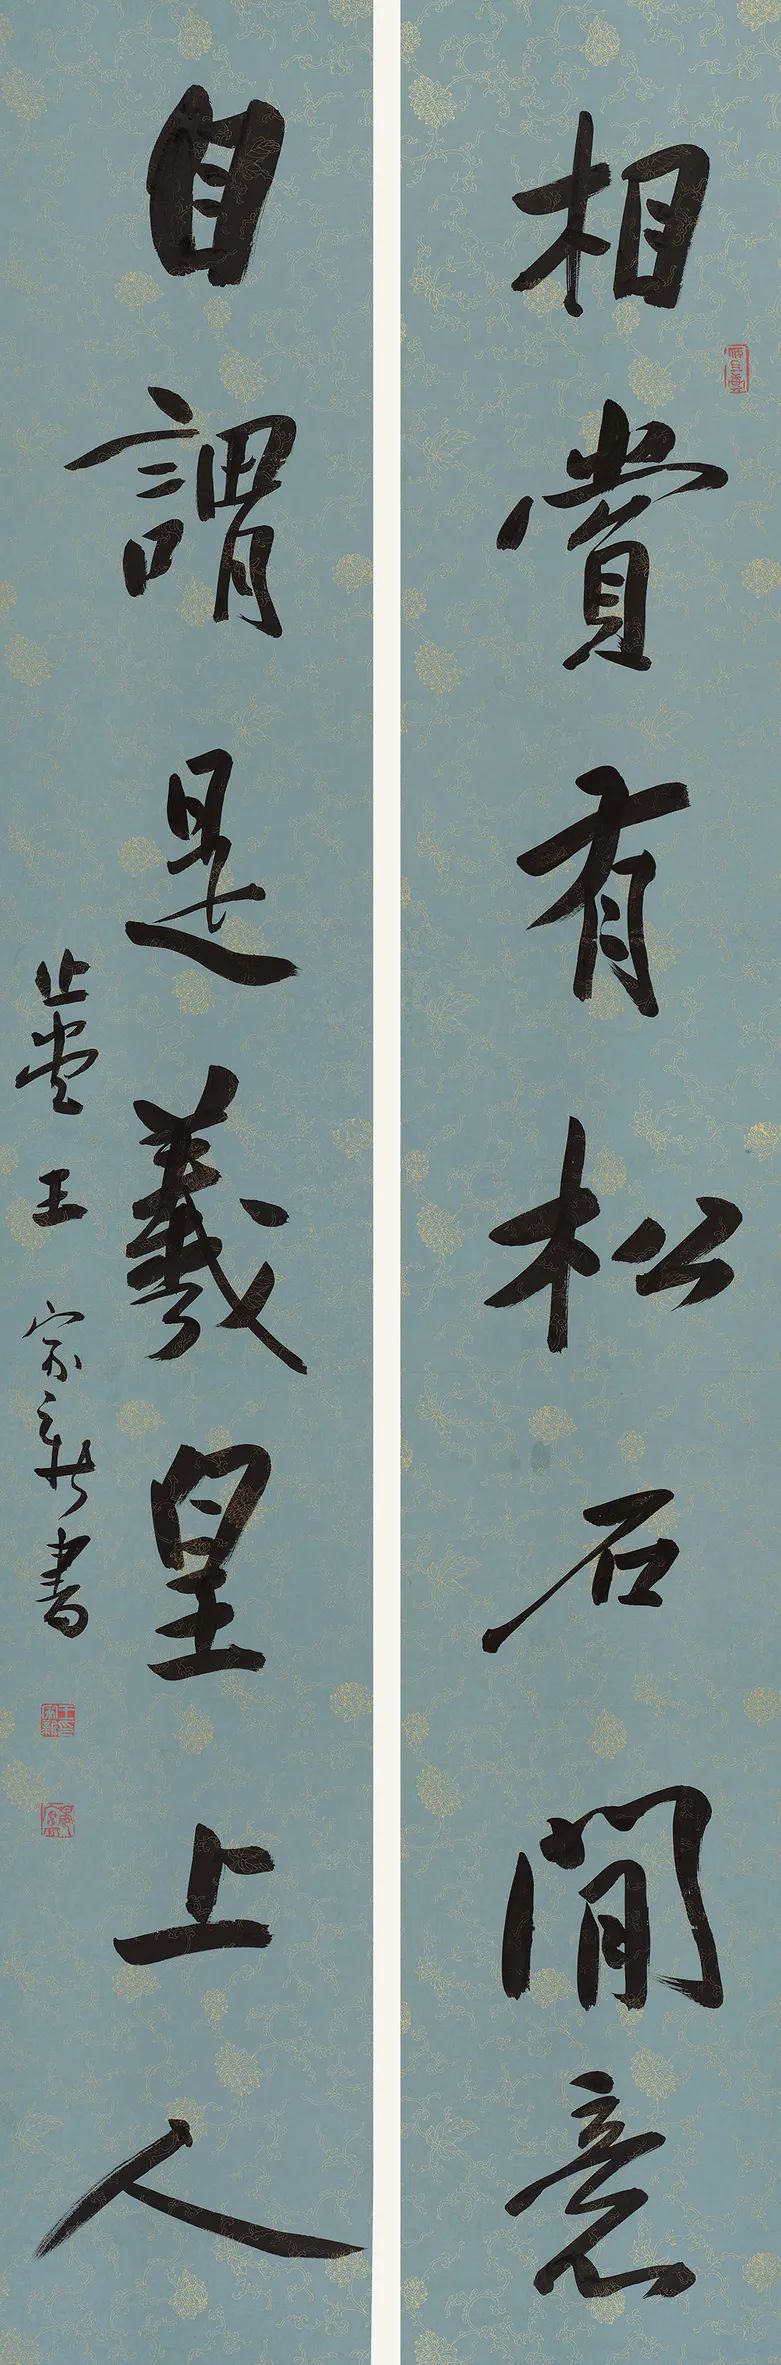 相賞有松石間意
自謂是羲皇上人
止堂王宗新書